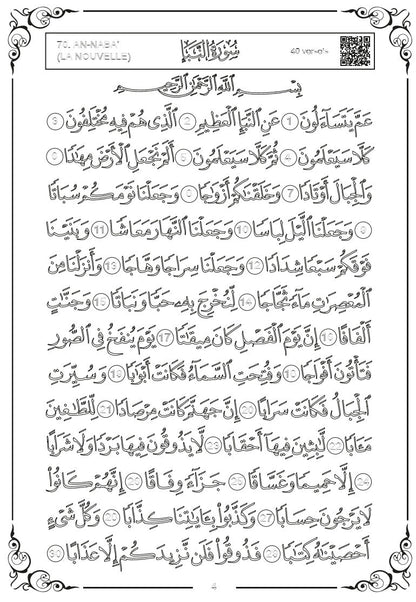 78. AN-NABA'
(LA NOUVELLE)
سُورَةُ النَّبَإِ
40 versets
بِسْمِ اللَّهِ الرَّحْمَٰنِ الرَّحِيمِ
عَمَّ يَتَسَاءَلُونَ 1 عَنِ النَّبَإِ الْعَظِيمِ 2 الَّذِي هُمْ فِيهِ مُخْتَلِفُونَ 3
كَلَّا سَيَعْلَمُونَ 4 ثُمَّ كَلَّا سَيَعْلَمُونَ 5 أَلَمْ نَجْعَلِ الْأَرْضَ مِهَادًا 6
وَالْجِبَالَ أَوْتَادًا 7 وَخَلَقْنَاكُمْ أَزْوَاجًا 8 وَجَعَلْنَا نَوْمَكُمْ سُبَاتًا
9 وَجَعَلْنَا اللَّيْلَ لِبَاسًا 10 وَجَعَلْنَا النَّهَارَ مَعَاشًا 11 وَبَنَيْنَا
فَوْقَكُمْ سَبْعًا شِدَادًا 12 وَجَعَلْنَا سِرَاجًا وَهَّاجًا 13 وَأَنْزَلْنَا مِنَ
الْمُعْصِرَاتِ مَاءً ثَجَّاجًا 14 لِنُخْرِجَ بِهِ حَبًّا وَنَبَاتًا 15 وَجَنَّاتٍ
أَلْفَافًا 16 إِنَّ يَوْمَ الْفَصْلِ كَانَ مِيقَاتًا 17 يَوْمَ يُنْفَخُ فِي الصُّورِ
فَتَأْتُونَ أَفْوَاجًا 18 وَفُتِحَتِ السَّمَاءُ فَكَانَتْ أَبْوَابًا 19 وَسُيِّرَتِ
الْجِبَالُ فَكَانَتْ سَرَابًا 20 إِنَّ جَهَنَّمَ كَانَتْ مِرْصَادًا 21 لِلطَّاغِينَ
مَآبًا 22 لَابِثِينَ فِيهَا أَحْقَابًا 23 لَا يَذُوقُونَ فِيهَا بَرْدًا وَلَا شَرَابًا
24 إِلَّا حَمِيمًا وَغَسَّاقًا 25 جَزَاءً وِفَاقًا 26 إِنَّهُمْ كَانُوا
لَا يَرْجُونَ حِسَابًا 27 وَكَذَّبُوا بِآيَاتِنَا كِذَّابًا 28 وَكُلَّ شَيْءٍ
أَحْصَيْنَاهُ كِتَابًا 29 فَذُوقُوا فَلَنْ نَزِيدَكُمْ إِلَّا عَذَابًا 30
4